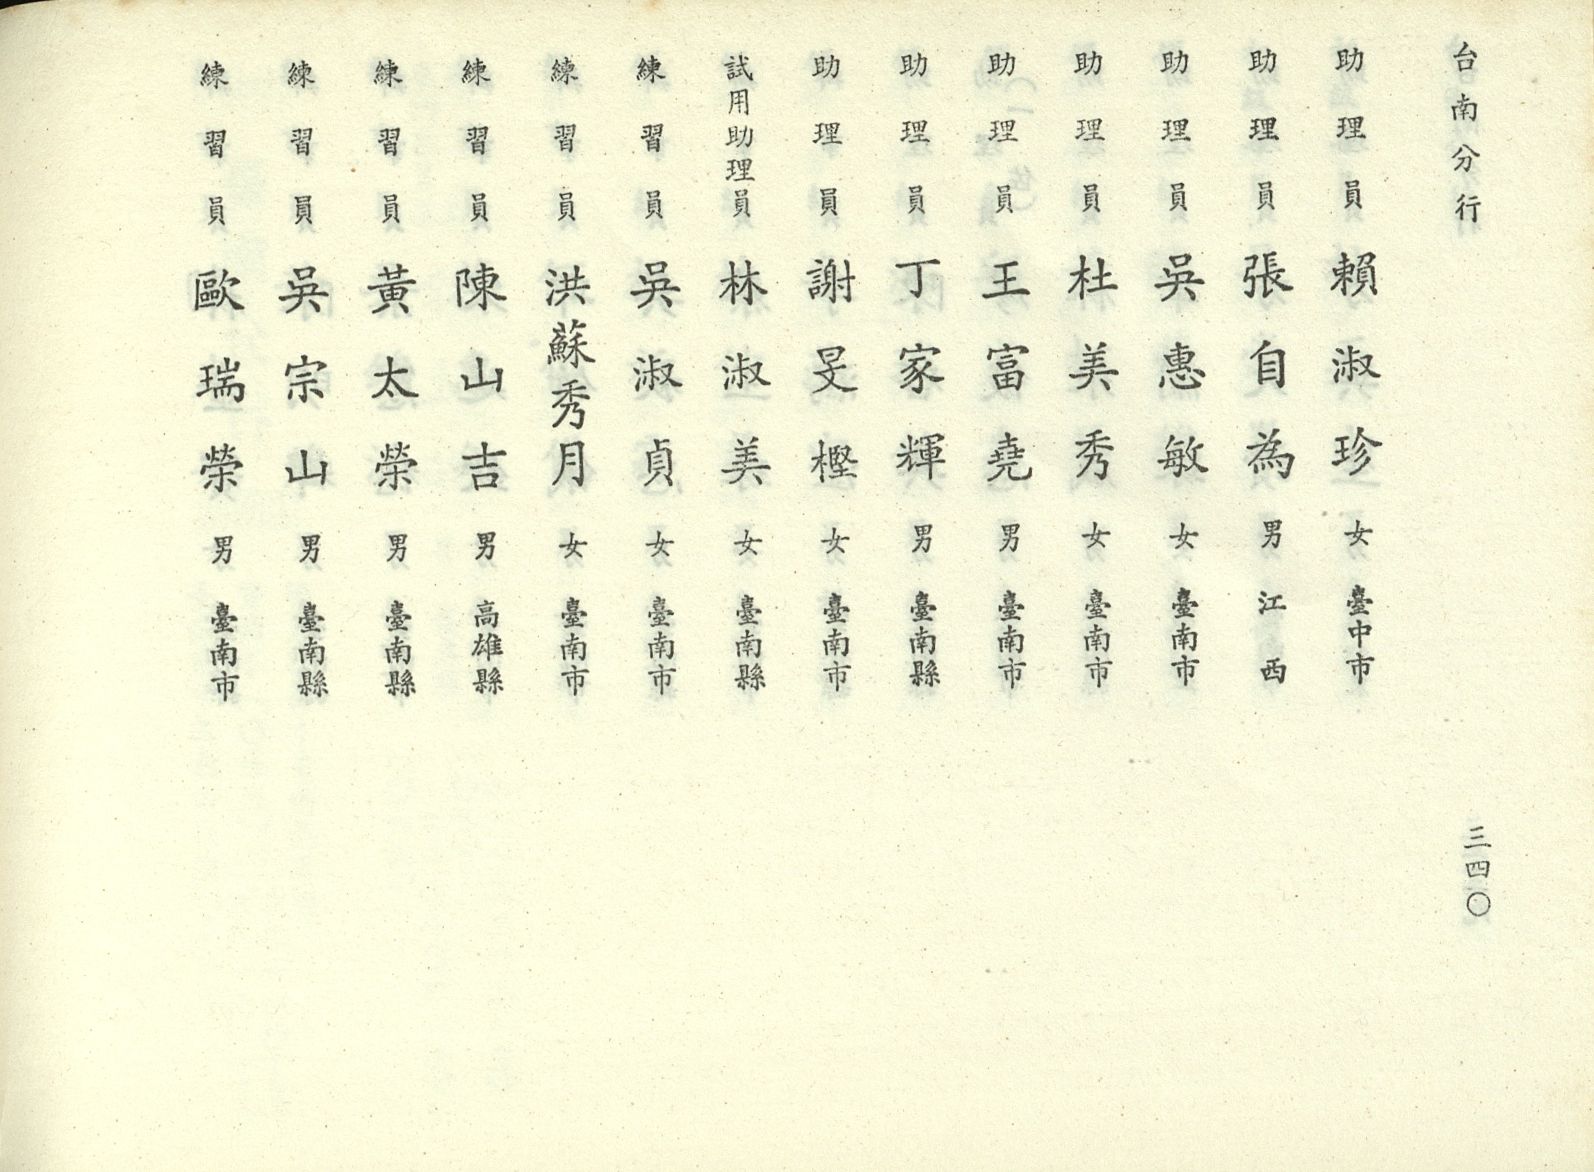 台南分行
助理員 賴淑珍 女 臺中市
助理員 張自為 男 江西
助理員 吳惠敏 女 臺南市
助理員 杜美秀 女 臺南市
助理員 王富堯 男 臺南市
助理員 丁家輝 男 臺南縣
助理員 謝旻樫 女 臺南市
試用助理員 林淑美 女 臺南縣
練習員 吳淑貞 女 臺南市
練習員 洪蘇秀月 女 臺南市
練習員 陳山吉 男 高雄縣
練習員 黃太榮 男 臺南縣
練習員 吳宗山 男 臺南縣
練習員 歐瑞榮 男 臺南市
三四〇